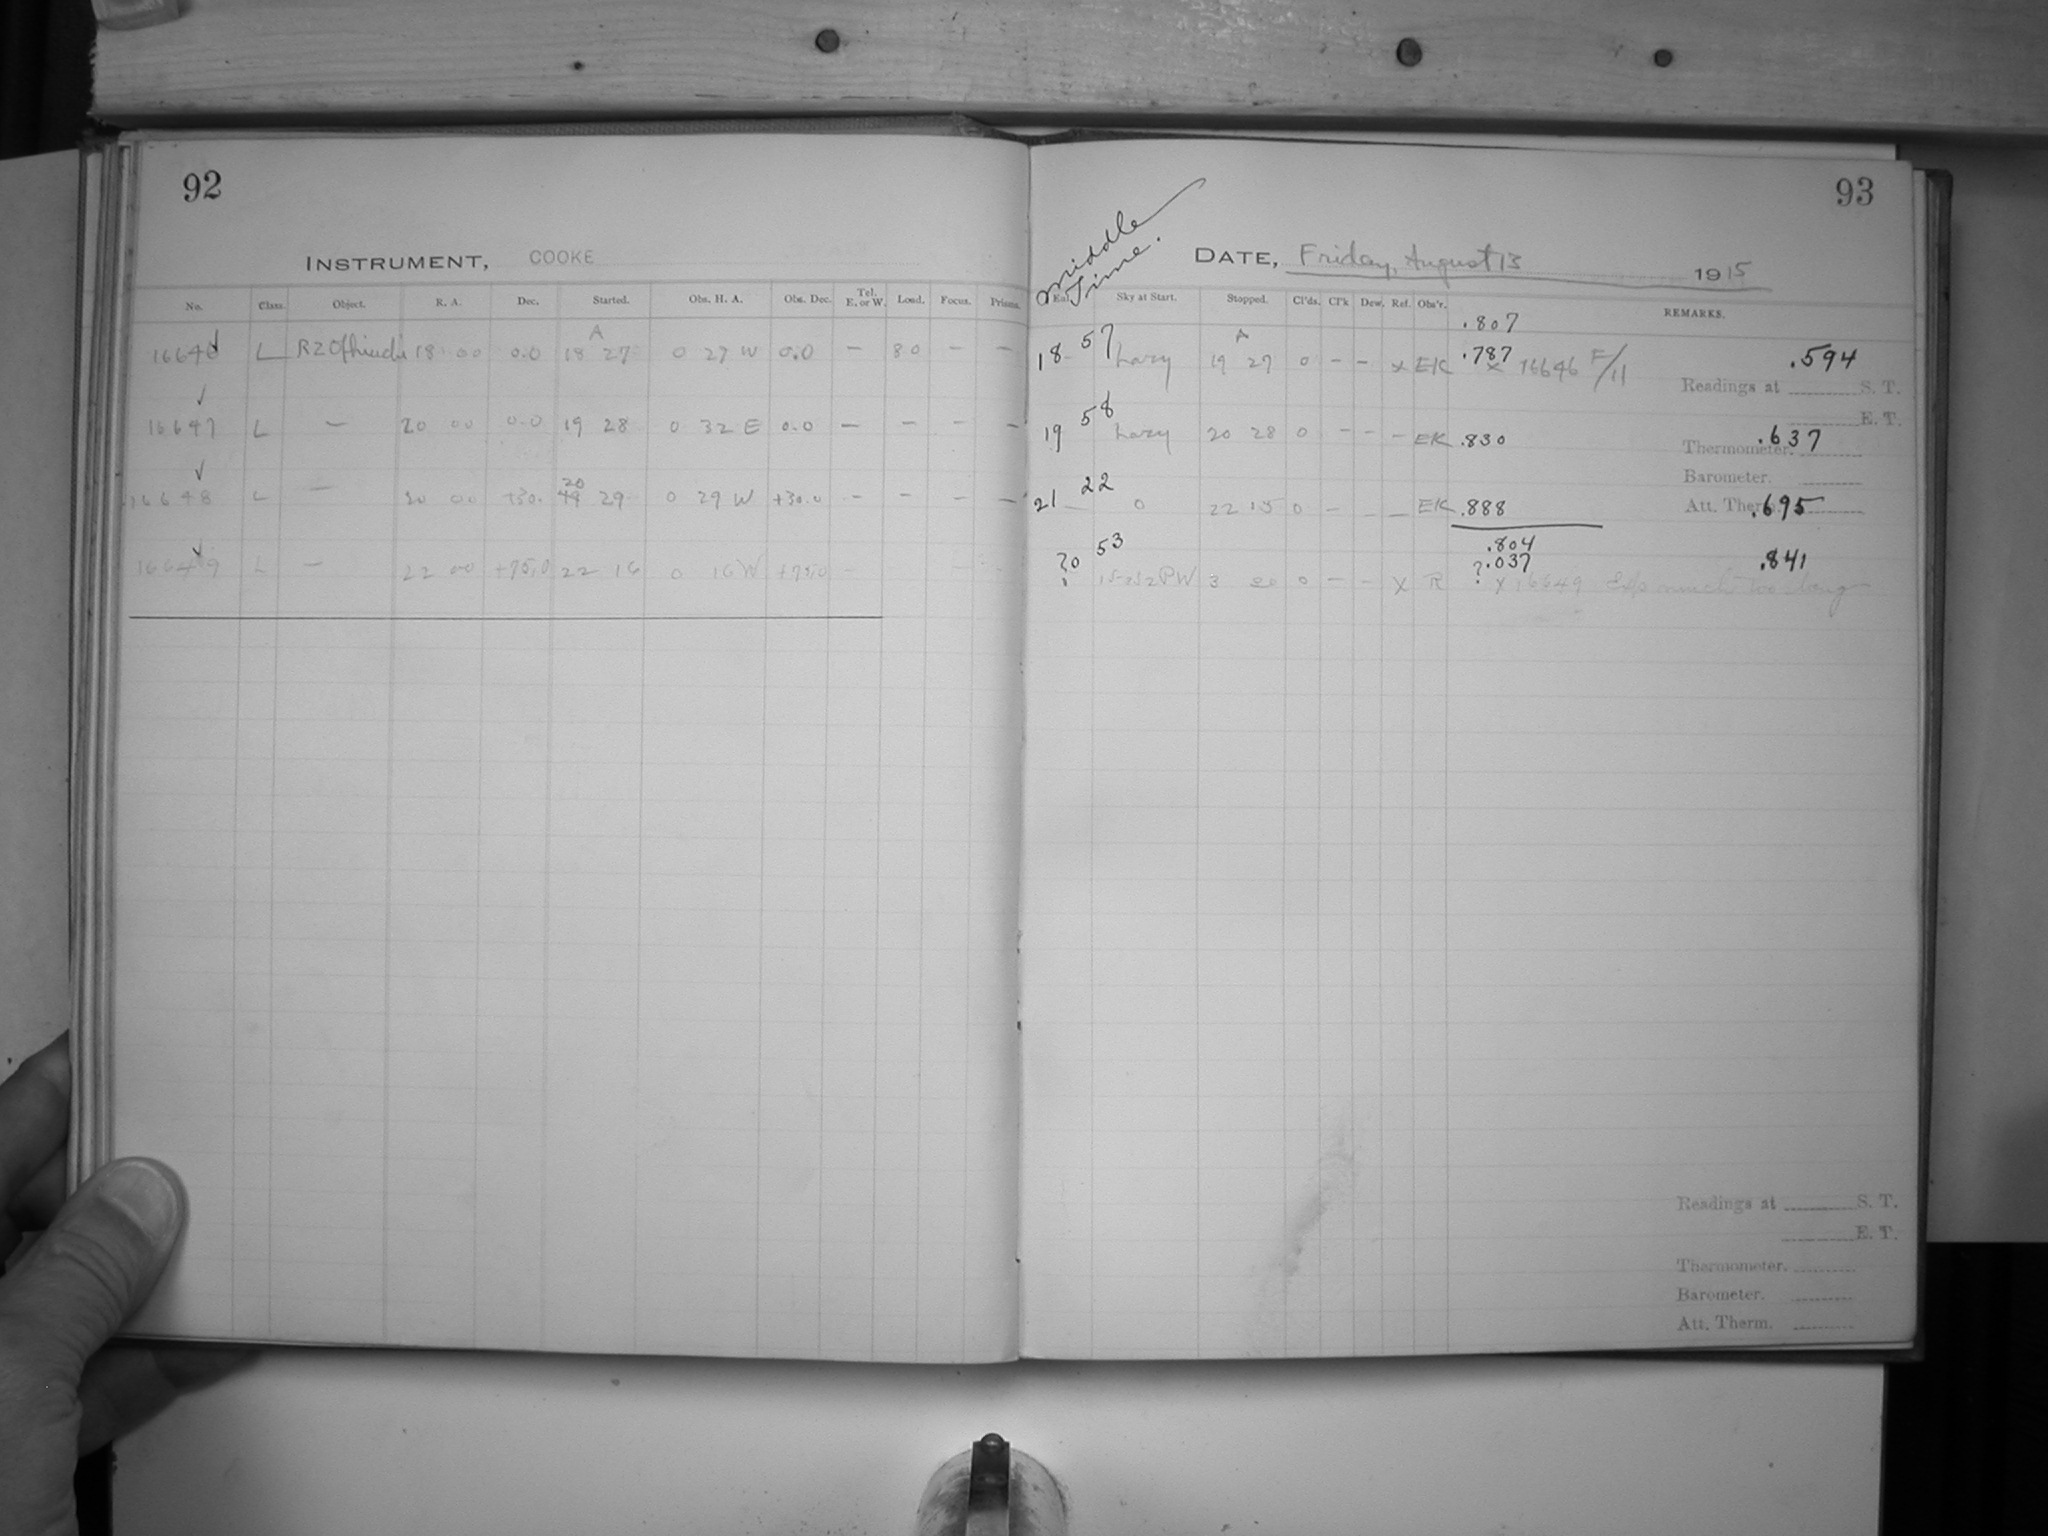 92
INSTRUMENT, COOKE
No. Class. Object. R. A. Dec. Started. Obs. H. A. Obs. Dec. Tel. E. or W. Load. Focus. Prisms.
A
16646 L RZ Ophiuchi 18 00 0.0 18 27 0 27 W 0.0 — 80 — —
16647 L — 20 00 0.0 19 28 0 32 E 0.0 — — — —
20
16648 L — 20 00 +30. 19 29 0 29 W +30.0 — — — —
16649 L — 22 00 +75.0 22 16 0 16 W +75.0 —
93
Middle
Time.
DATE, Friday, August 13 1915
Sky at Start. Stopped. Cl'ds. Cl'k Dew. Ref. Obs'r. REMARKS.
.807
A
18 57 hazy 19 27 0 — — x EK .787 x 16646 F/11 .594
Readings at S. T.
E. T.
19 58 hazy 20 28 0 — — — EK .830 .637
Thermometer.
Barometer.
21 22 0 22 15 0 — — EK .888 .695
Att. Therm.
.804
?0 53 3 20 0 — — x R ?.037 .841
x 16649 Exp much too long
Readings at S. T.
E. T.
Thermometer.
Barometer.
Att. Therm.